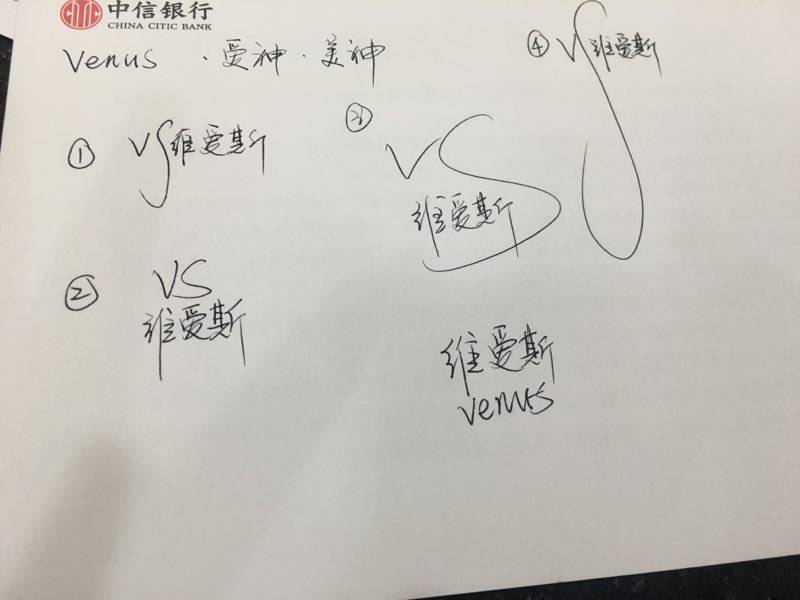 中信银行
CHINA CITIC BANK
Venus · 爱神 · 美神
① VS 维爱斯
② VS
维爱斯
③ VS
维爱斯
④ VS 维爱斯
维爱斯
venus